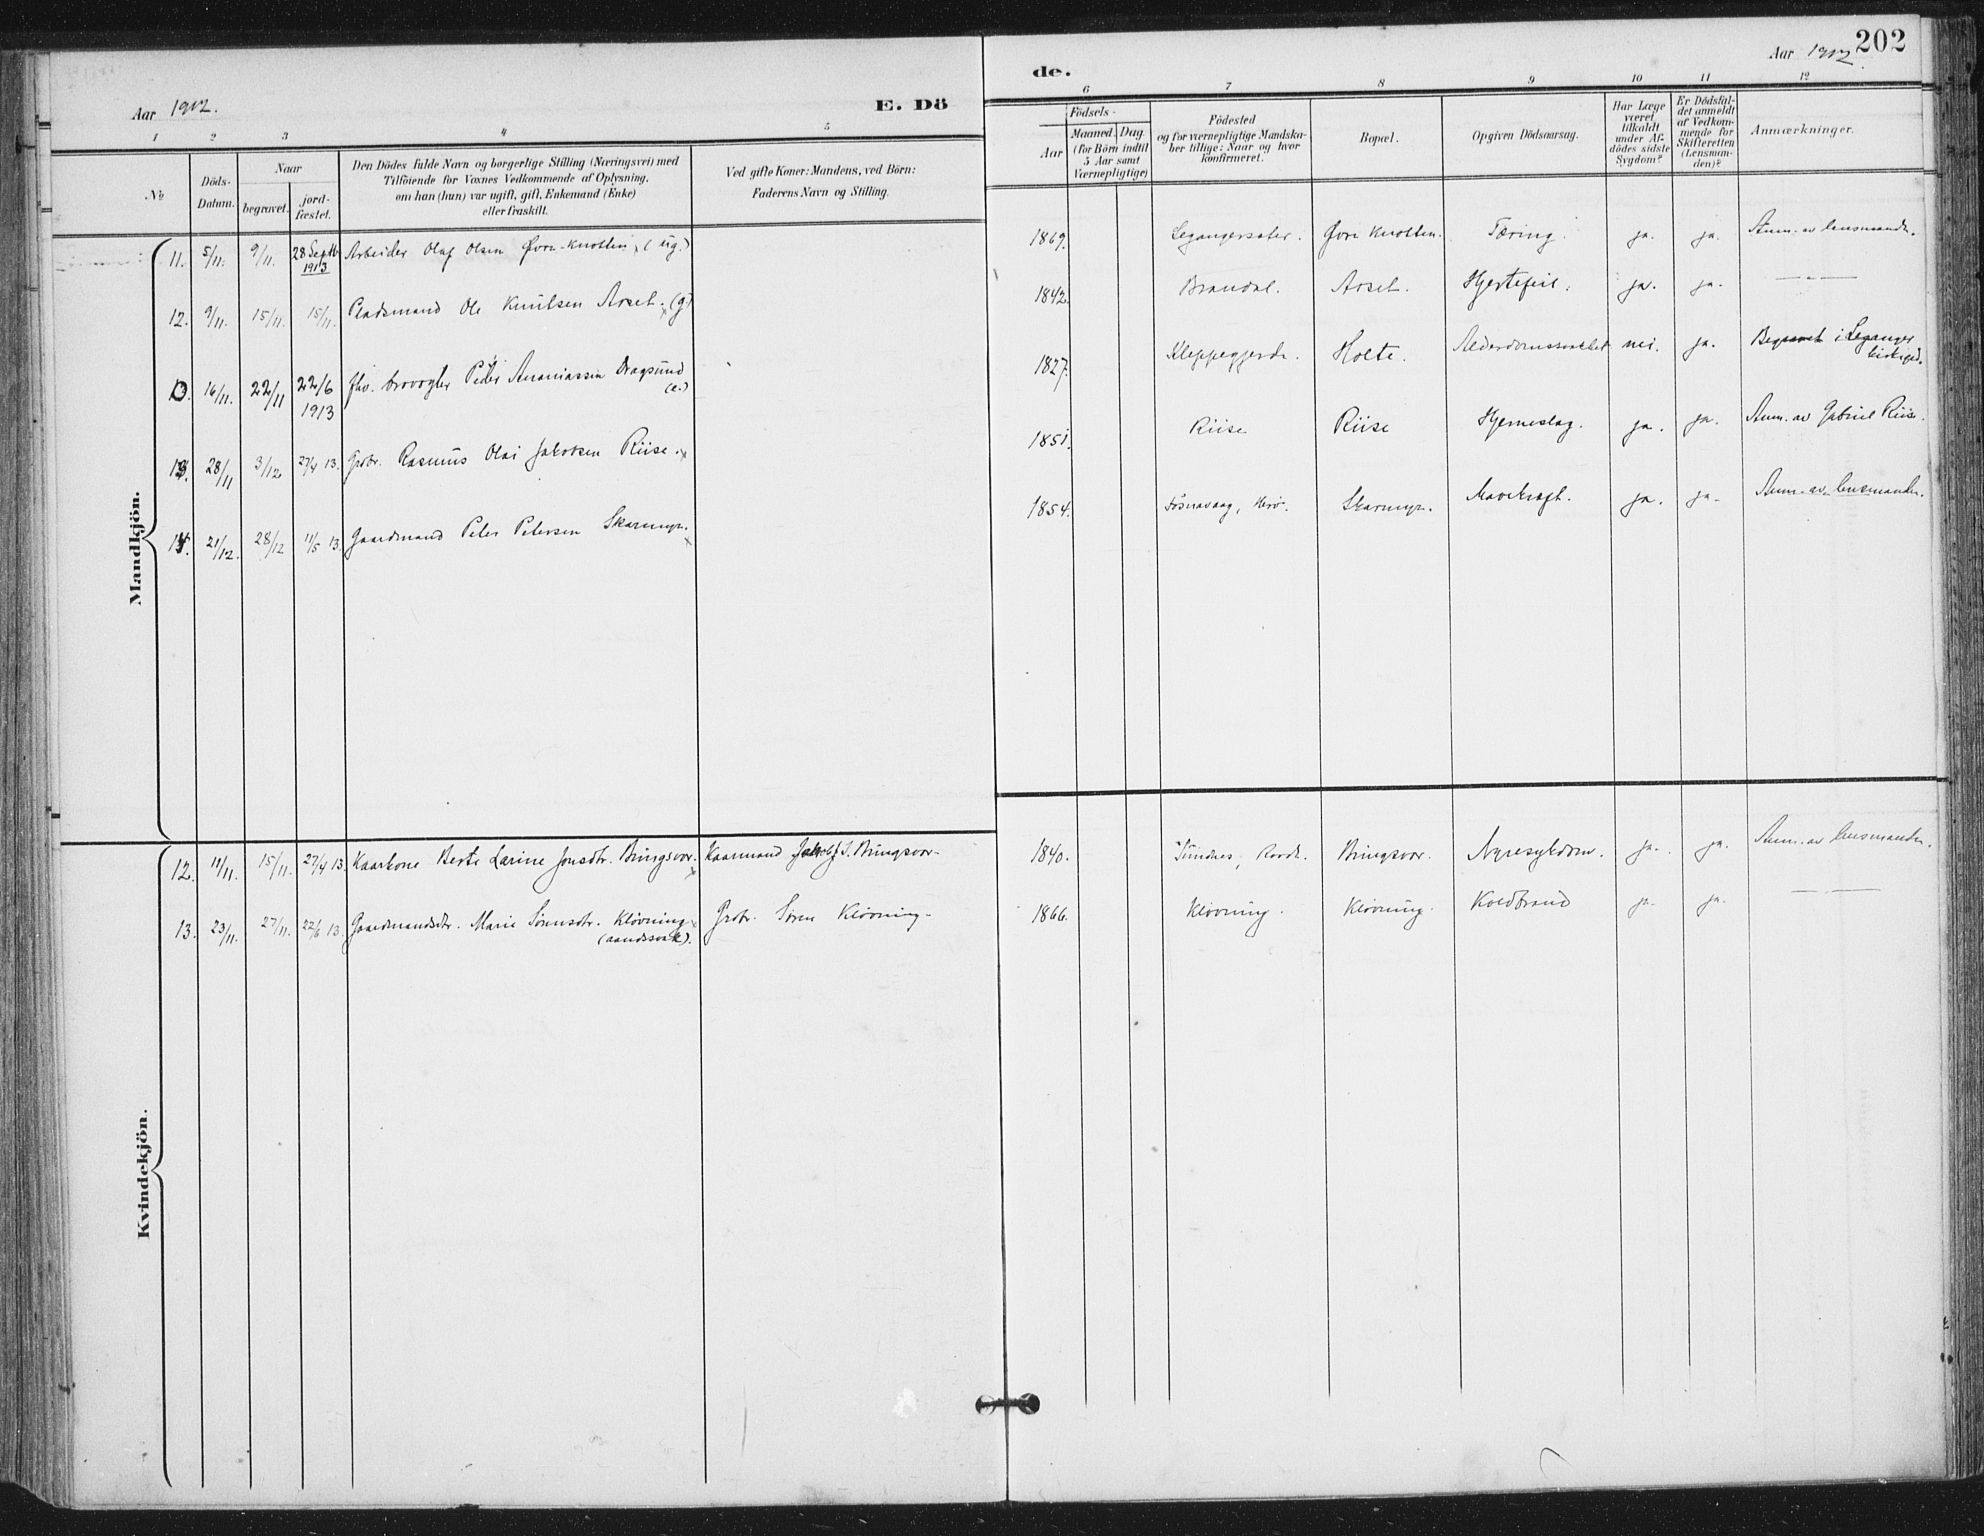 202
Aar 1912.
E. Dö
de.
Aar 1912.
1 2 3 4 5
6 7 8 9 10 11 12
No
Döds-
Datum.
Naar
begravet.
jord-
fæstet.
Den Dödes fulde Navn og borgerlige Stilling (Næringsvei) med
Tilföiende for Voxnes Vedkommende af Oplysning,
om han (hun) var ugift, gift, Enkemand (Enke)
eller fraskilt.
Ved gifte Koner: Mandens, ved Börn:
Faderens Navn og Stilling.
Födsels-
Aar
Maaned. Dag.
(for Börn indtil
5 Aar samt
Værnepligtige)
Födested
og for værnepligtige Mandska-
ber tillige: Naar og hvor
konfirmeret.
Bopæl.
Opgiven Dödsaarsag.
Har Læge
været
tilkaldt
under Af-
dödes sidste
Sygdom?
Er Dödsfal-
det anmeldt
af Vedkom-
mende for
Skifteretten
(Lensman-
den)?
Anmærkninger.
Mandkjön.
11. 5/11. 9/11. 28 Septb 1913 Arbeider Olaf Olsen Øvre-Knotten (ug.) 1869. Legangersæter. Øvre Knotten. Tæring. ja. ja. Anm. av lensmanden.
12. 9/11. 15/11. 15/11. Pladsmand Ole Knutsen Aroet. (g) 1842. Brandal. Aroet. Hjertefeil. ja. ja. — " —
13. 16/11. 22/11 22/6 1913 fhv. brovogter Peder Ananiassen Dragsund (e.) 1827. Kleppegjerde. Holte. Alderdomssvakhet nei. ja. Begravet i Leganger kirkegd.
28/11 3/12 27/4 13. Grbr. Rasmus Olai Jakobsen Riise. 1851. Riise Riise Hjerneslag. ja. ja. Anm. av Gabriel Riise.
21/12. 28/12 11/5 13. Gaardmand Peter Petersen Skarmyr. 1854. Fosnavaag, Herø. Skarmyr. Mavekræft. ja. ja. Anm. av lensmanden.
Kvindekjön.
12. 11/11. 15/11. 27/4 13. Kaarkone Berte Larine Jonsdtr. Bringsvor. Kaarmand Jakob J. Bringsvor 1840. Sundnes, Bringsvor. Nyresykdom. ja. ja. Anm. av lensmanden.
13. 23/11. 27/11. 22/6 13. Gaardmandsdtr. Marie Sørensdtr. Kløvning (aandssvak). Grbr. Søren Kløvning 1866. Kløvning. Kløvning. Koldbrand ja. ja. — " —